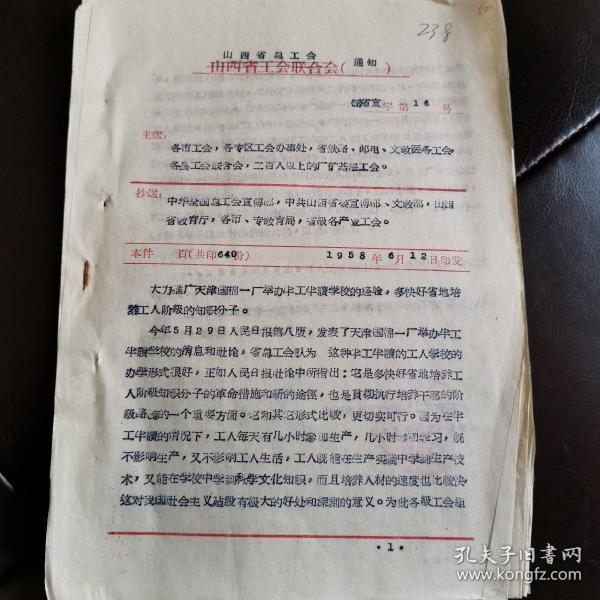 238
50
山西省总工会
山西省工会联合会(通知)
(58)省宣字第16号
主送:
各市工会,各专区工会办事处,省铁路、邮电、文教医务工会
各县工会联合会,二百人以上的厂矿基层工会。
抄送:
中华全国总工会宣传部,中共山西省委宣传部、文教部,山西
省教育厅,各市、专教育局,省级各产业工会。
本件 頁(共印640份) 1958年6月12日印发
大力推广天津国棉一厂举办半工半讀学校的经验,多快好省地培
养工人阶级的知识分子。
今年5月29日人民日报第八版,发表了天津国棉一厂举办半工
半讀学校的消息和社论,省总工会认为 这种半工半讀的工人学校的
办学形式很好,正如人民日报社论中所指出:它是多快好省地培养工
人阶级知识分子的革命措施和新的途径,也是贯彻执行培养干部的阶
级路线的一个重要方面。它和其它形式比较,更切实可行。因为在半
工半讀的情况下,工人每天有几小时参加生产,几小时参加学习,既
不影响生产,又不影响工人生活,工人既能在生产实践中学到生产技
术,又能在学校中学到科学文化知识,而且培养人材的速度也比较快
这对我国社会主义建設有极大的好处和深刻的意义。为此各级工会组
·1·
孔夫子旧书网
www.kongfz.com